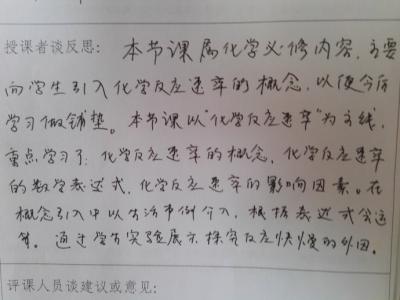 授课者谈反思: 本节课属化学必修内容,主要
向学生引入化学反应速率的概念,以便今后
学习做铺垫。本节课以"化学反应速率"为主线,
重点学习了: 化学反应速率的概念,化学反应速率
的数学表达式,化学反应速率的影响因素。在
概念引入中以生活事例介入,根据表达式会运
算。通过学生实验展示探究反应快慢的外因。
评课人员谈建议或意见: